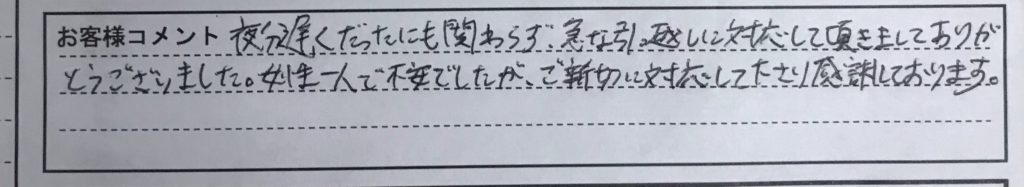 お客様コメント 夜分遅くだったにも関わらず、急な引っ越しに対応して頂きましてありが
とうございました。女性一人で不安でしたが、ご親切に対応して下さり感謝しております。